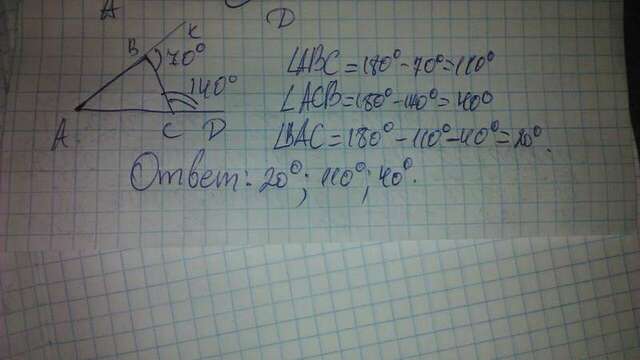 A
D
K
B
70°
140°
A
C
D
∠ABC = 180° - 70° = 110°
∠ACB = 180° - 140° = 40°
∠BAC = 180° - 110° - 40° = 20°.
Ответ: 20°; 110°; 40°.